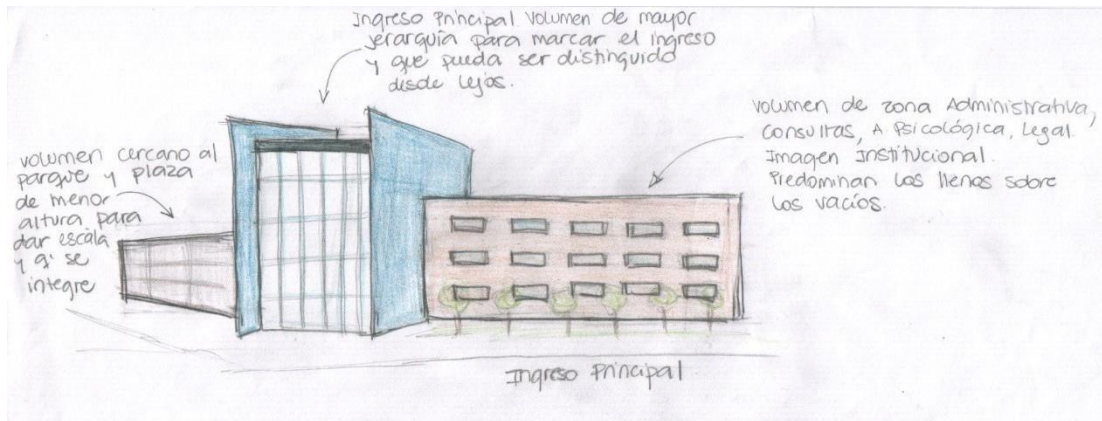 Ingreso Principal volumen de mayor
jerarquía para marcar el ingreso
y que pueda ser distinguido
desde lejos.
volumen cercano al
parque y plaza
de menor
altura para
dar escala
y q' se
integre
volumen de zona Administrativa,
consultas, A Psicológica, Legal.
Imagen Institucional.
Predominan los llenos sobre
los vacíos.
Ingreso Principal